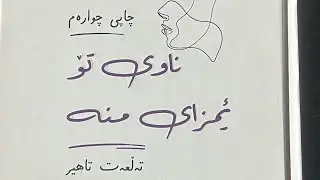 چاپی چوارەم
ناوی تۆ
ئیمزای منە
تەڵعەت تاهیر